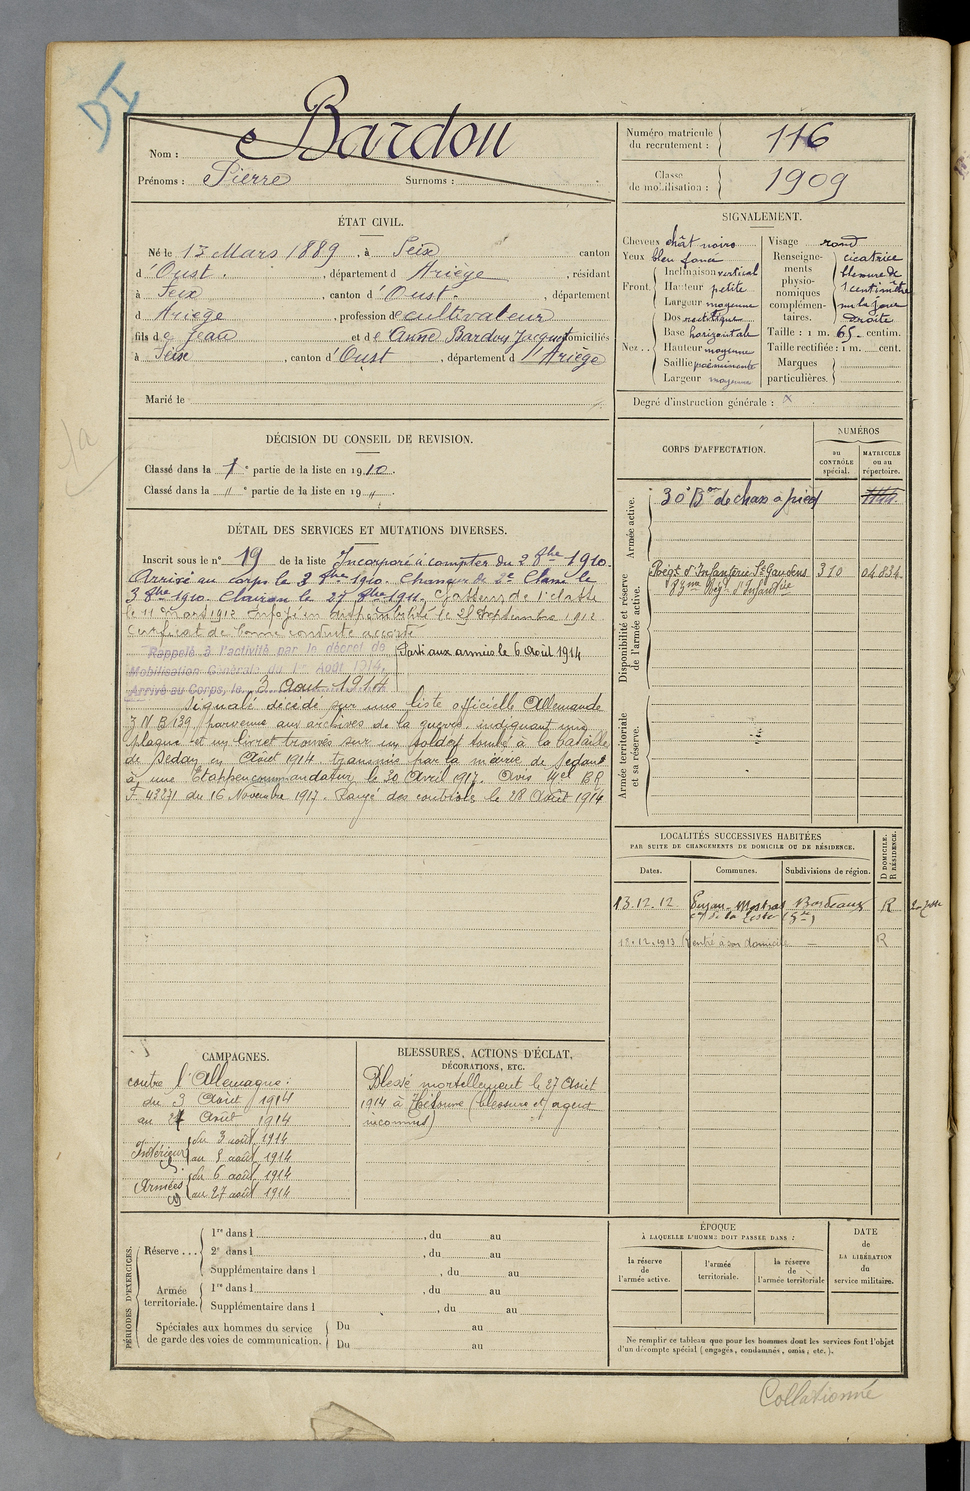 DI
Nom : Bardou
Prénoms : Pierre Surnoms :
Numéro matricule du recrutement : 116
Classe de mobilisation : 1909
ÉTAT CIVIL.
Né le 13 Mars 1889, à Seix canton
d'Oust, département d Ariège, résidant
à Seix, canton d'Oust, département
d Ariège, profession de cultivateur
fils de Jean et de Anne Bardou Jacquet domiciliés
à Seix, canton d'Oust, département d l'Ariège
Marié le
SIGNALEMENT.
Cheveux chât noirs
Yeux bleu foncé
Front Inclinaison vertical
Hauteur petite
Largeur moyenne
Nez Dos rectiligne
Base horizontale
Hauteur moyenne
Saillie proéminente
Largeur moyenne
Visage rond
Renseignements physionomiques complémentaires. cicatrice
blessure de
1 centimètre
sur la joue
droite
Taille : 1 m. 65 centim.
Taille rectifiée : 1 m. cent.
Marques particulières.
Degré d'instruction générale :
DÉCISION DU CONSEIL DE REVISION.
Classé dans la 1e partie de la liste en 1910.
Classé dans la " e partie de la liste en 19 ".
DÉTAIL DES SERVICES ET MUTATIONS DIVERSES.
Inscrit sous le n° 19 de la liste Incorporé à compter du 2 8bre 1910.
Arrivé au corps le 3 8bre 1910. Chasseur de 2e Classe le
3 8bre 1910. Clairon le 27 8bre 1911. Chasseur de 1e classe
le 11 mars 1912 Envoyé en disponibilité le 25 Septembre 1912
Certificat de bonne conduite accordé
Rappelé à l'activité par le décret de
Mobilisation Générale du 1er Août 1914.
Arrivé au Corps, le 3 Aout 1914
Parti aux armées le 6 Août 1914
Signalé décédé sur une liste officielle Allemande
parvenue aux archives de la guerre, indiquant une
plaque et un livret trouvés sur un soldat tombé à la bataille
de Sedan en Août 1914, transmise par la mairie de Sedan
à une Etappencommandatur le 20 Avril 1917. Avis Mel BR
F. 43271 du 16 Novembre 1917. Rayé des contrôles le 28 Août 1914
CORPS D'AFFECTATION.
NUMÉROS
au CONTRÔLE spécial.
MATRICULE ou au répertoire.
Armée active.
30e Bon de chass à pied
Disponibilité et réserve de l'armée active.
Régt d'Infanterie St Gaudens 310 04834
183me Regt d'Infanterie
Armée territoriale et sa réserve.
LOCALITÉS SUCCESSIVES HABITÉES
PAR SUITE DE CHANGEMENTS DE DOMICILE OU DE RÉSIDENCE.
Dates. Communes. Subdivisions de région. D DOMICILE. R RÉSIDENCE.
13.12.12 Gujan-Mestras Bordeaux R
con de la Teste
18.12.1913 Rentré à son domicile — R
CAMPAGNES.
contre l'Allemagne :
du 3 Août 1914
au 27 Août 1914
Intérieur du 3 août 1914
au 5 août 1914
Armées du 6 août 1914
au 27 août 1914
BLESSURES, ACTIONS D'ÉCLAT,
DÉCORATIONS, ETC.
Blessé mortellement le 27 Août
1914 à Thélonne (blessure et agent
inconnus)
PÉRIODES D'EXERCICES.
Réserve ... 1re dans l , du au
2e dans l , du au
Supplémentaire dans l , du au
Armée territoriale. 1re dans l , du au
Supplémentaire dans l , du au
Spéciales aux hommes du service de garde des voies de communication. Du au
Du au
ÉPOQUE
À LAQUELLE L'HOMME DOIT PASSER DANS :
la réserve de l'armée active.
l'armée territoriale.
la réserve de l'armée territoriale
DATE de LA LIBÉRATION du service militaire.
Ne remplir ce tableau que pour les hommes dont les services font l'objet
d'un décompte spécial (engagés, condamnés, omis, etc.).
Collationné